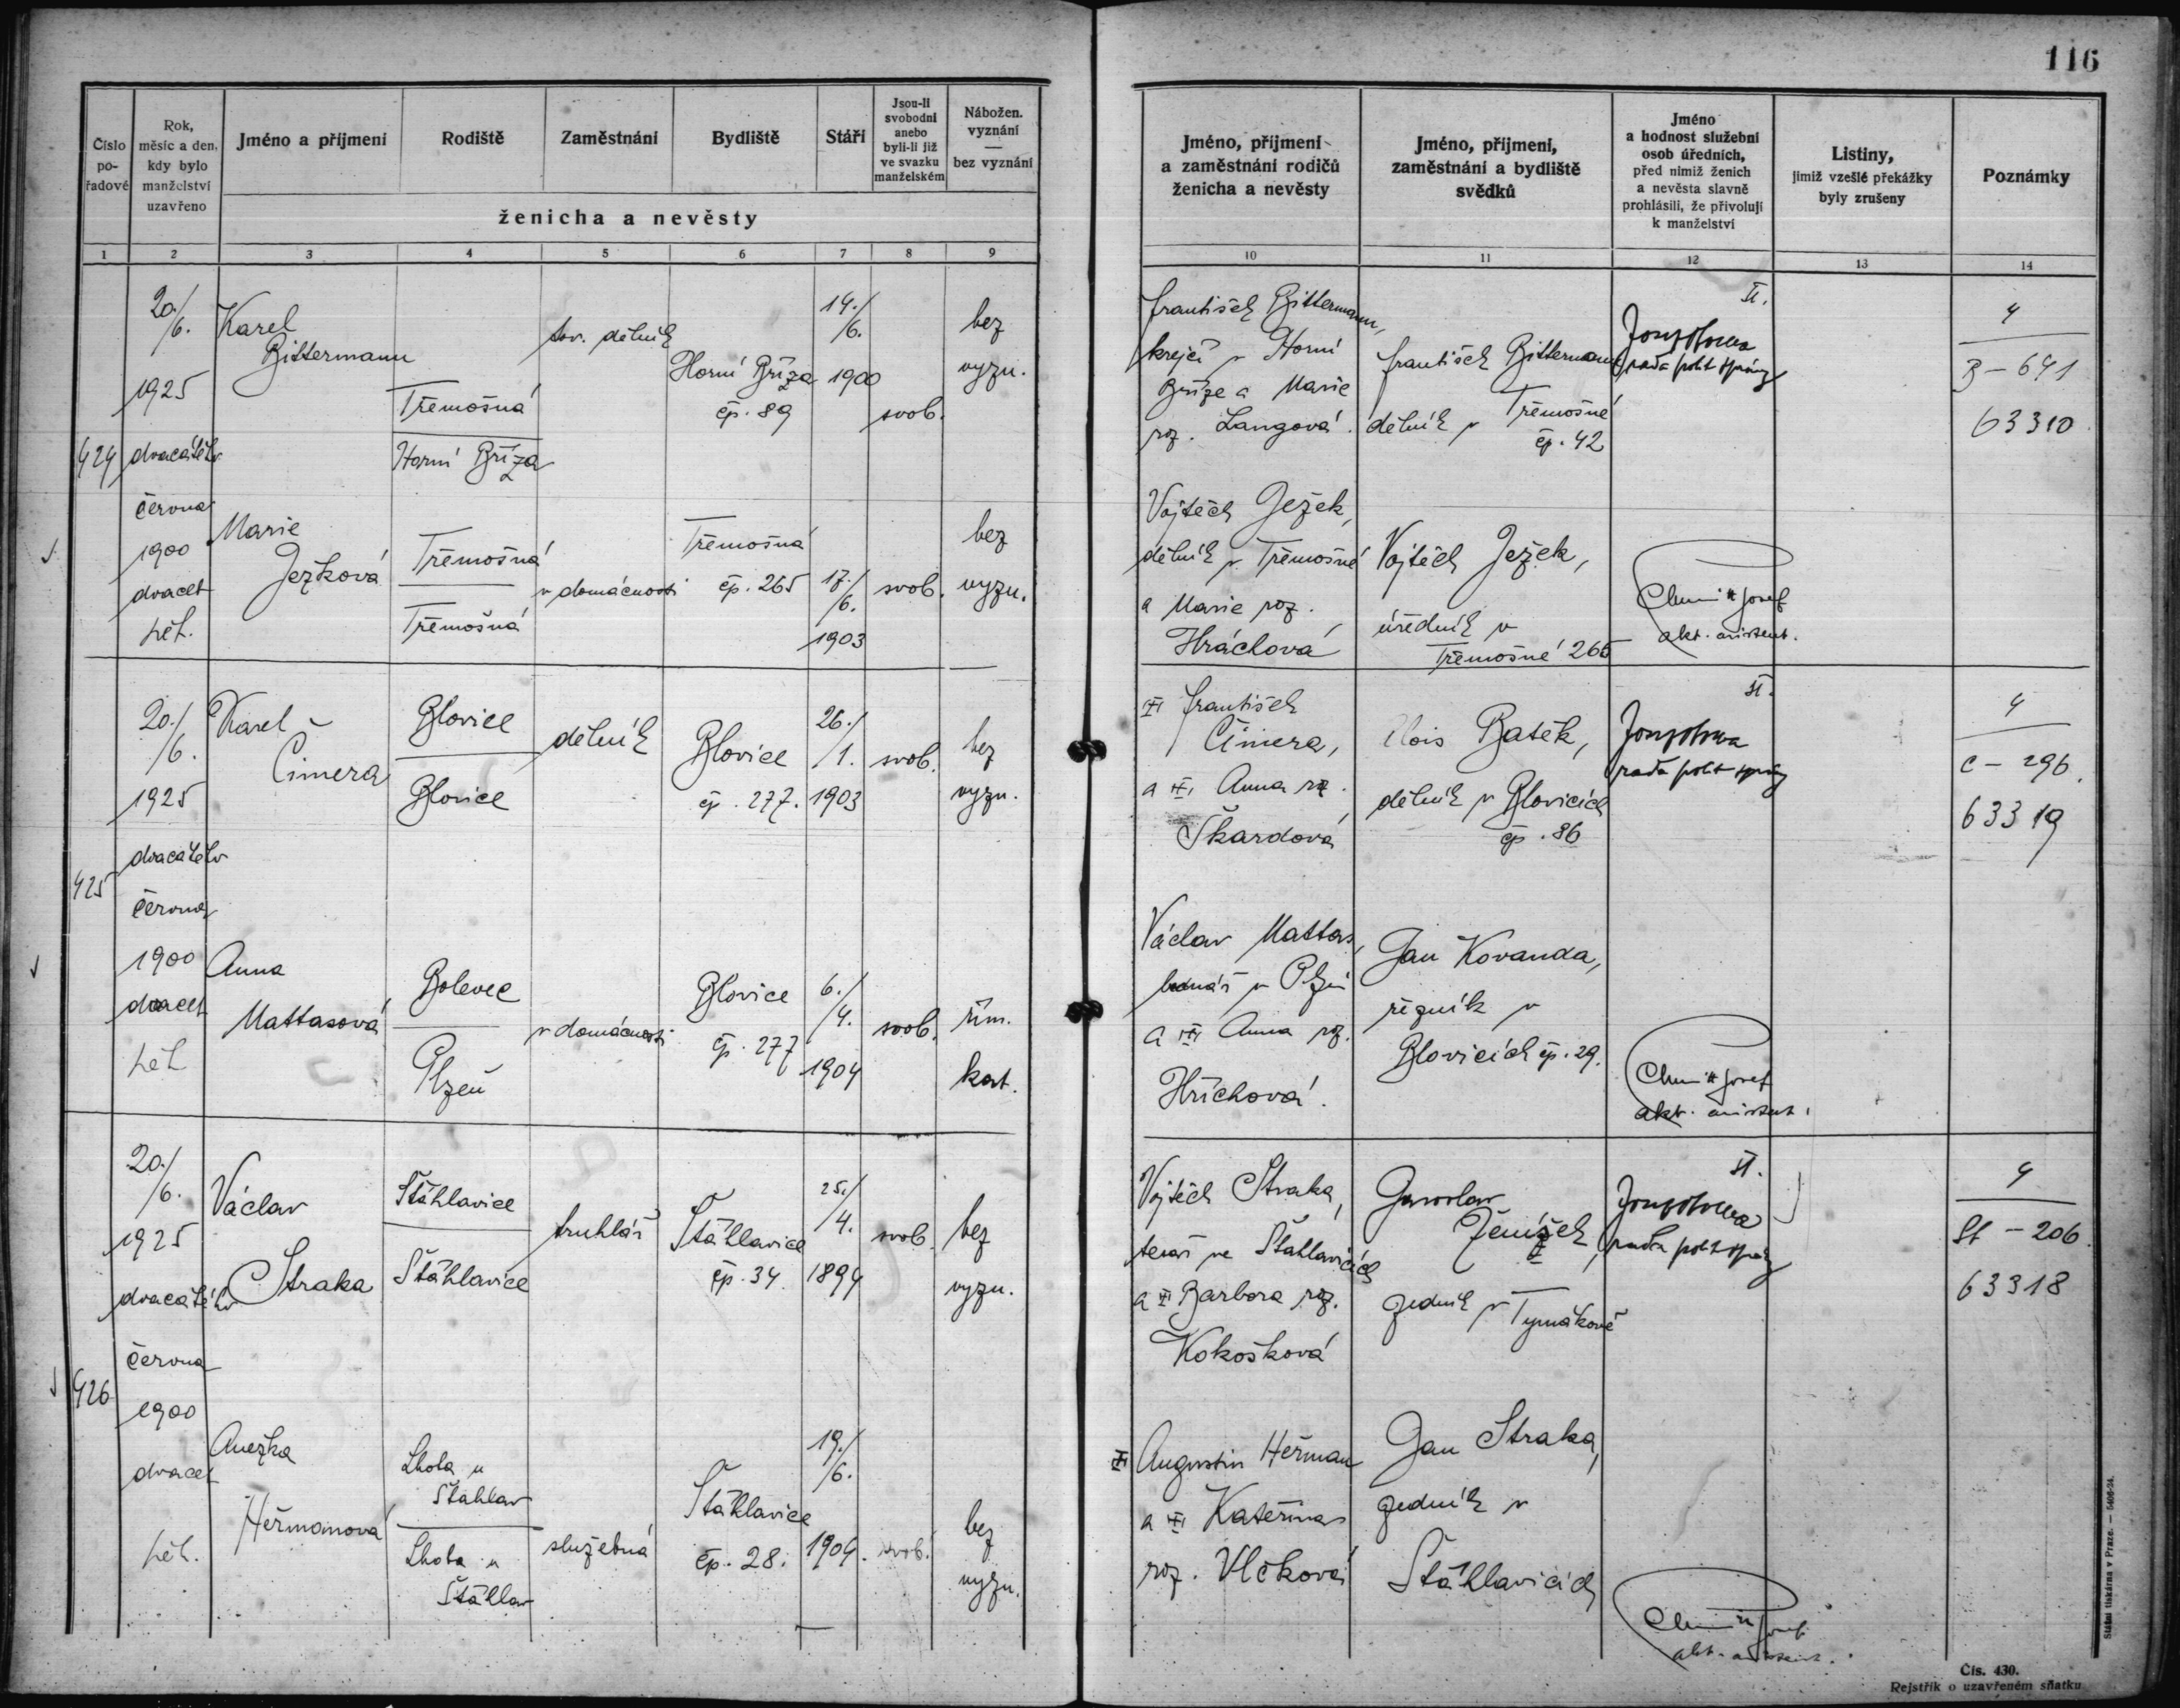 116
Číslo pořadové
Rok, měsíc a den, kdy bylo manželství uzavřeno
Jméno a příjmení
Rodiště
Zaměstnání
Bydliště
Stáří
Jsou-li svobodni anebo byli-li již ve svazku manželském
Nábožen. vyznání — bez vyznání
ženicha a nevěsty
Jméno, příjmení a zaměstnání rodičů ženicha a nevěsty
Jméno, příjmení, zaměstnání a bydliště svědků
Jméno a hodnost služební osob úředních, před nimiž ženich a nevěsta slavně prohlásili, že přivolují k manželství
Listiny, jimiž vzešlé překážky byly zrušeny
Poznámky
1 2 3 4 5 6 7 8 9 10 11 12 13 14
424
20./6.
1925
dvacátého
června
1900
dvacet
pět.
Karel
Bittermann
Třemošná
Horní Bříza
tov. dělník
Horní Bříza
čp. 89
14./6.
1900
svob.
bez
vyzn.
František Bittermann,
krejčí v Horní
Bříze a Marie
roz. Langová.
František Bittermann
dělník v Třemošné
čp. 42
II.
rada polit správy
4
B - 641
63310
Marie
Ježková
Třemošná
Třemošná
v domácnosti
Třemošná
čp. 265
17./6.
1903
svob.
bez
vyzn.
Vojtěch Ježek,
dělník v Třemošné
a Marie roz.
Hráchová
Vojtěch Ježek,
úředník v
Třemošné 265
Josef
akt. asistent.
425
20./6.
1925
dvacátého
června
1900
dvacet
pět
Karel
Čimera
Blovice
Blovice
dělník
Blovice
čp. 277.
26./1.
1903
svob.
bez
vyzn.
František
Čimera,
a Anna roz.
Škardová
Alois Batěk,
dělník v Blovicích
čp. 86
II.
rada polit správy
4
C - 296
63319
Anna
Mattasová
Bolevec
Plzeň
v domácnosti
Blovice
čp. 277
6./4.
1904
svob.
řím.
kat.
Václav Mattas,
bednář v Plzni
a Anna roz.
Hříchová.
Jan Kovanda,
řezník v
Blovicích čp. 29.
Josef
akt. asistent.
426
20./6.
1925
dvacátého
června
1900
dvacet
pět.
Václav
Straka
Štáhlavice
Štáhlavice
truhlář
Štáhlavice
čp. 34
25./4.
1894
svob.
bez
vyzn.
Vojtěch Straka,
tesař ve Štáhlavicích
a Barbora roz.
Kokošková
Jaroslav
Ženíšek
zedník v Tymákově
II.
rada polit správy
4
St - 206
63318
Anežka
Heřmanová
Lhota u
Štáhlav
Lhota u
Štáhlav
služebná
Štáhlavice
čp. 28.
19./6.
1904.
svob.
bez
vyzn.
Augustin Heřman
a Kateřina
roz. Vlčková
Jan Straka,
zedník v
Štáhlavicích
Josef
akt. asistent.
Státní tiskárna v Praze. — 5406-24.
Čís. 430.
Rejstřík o uzavřeném sňatku